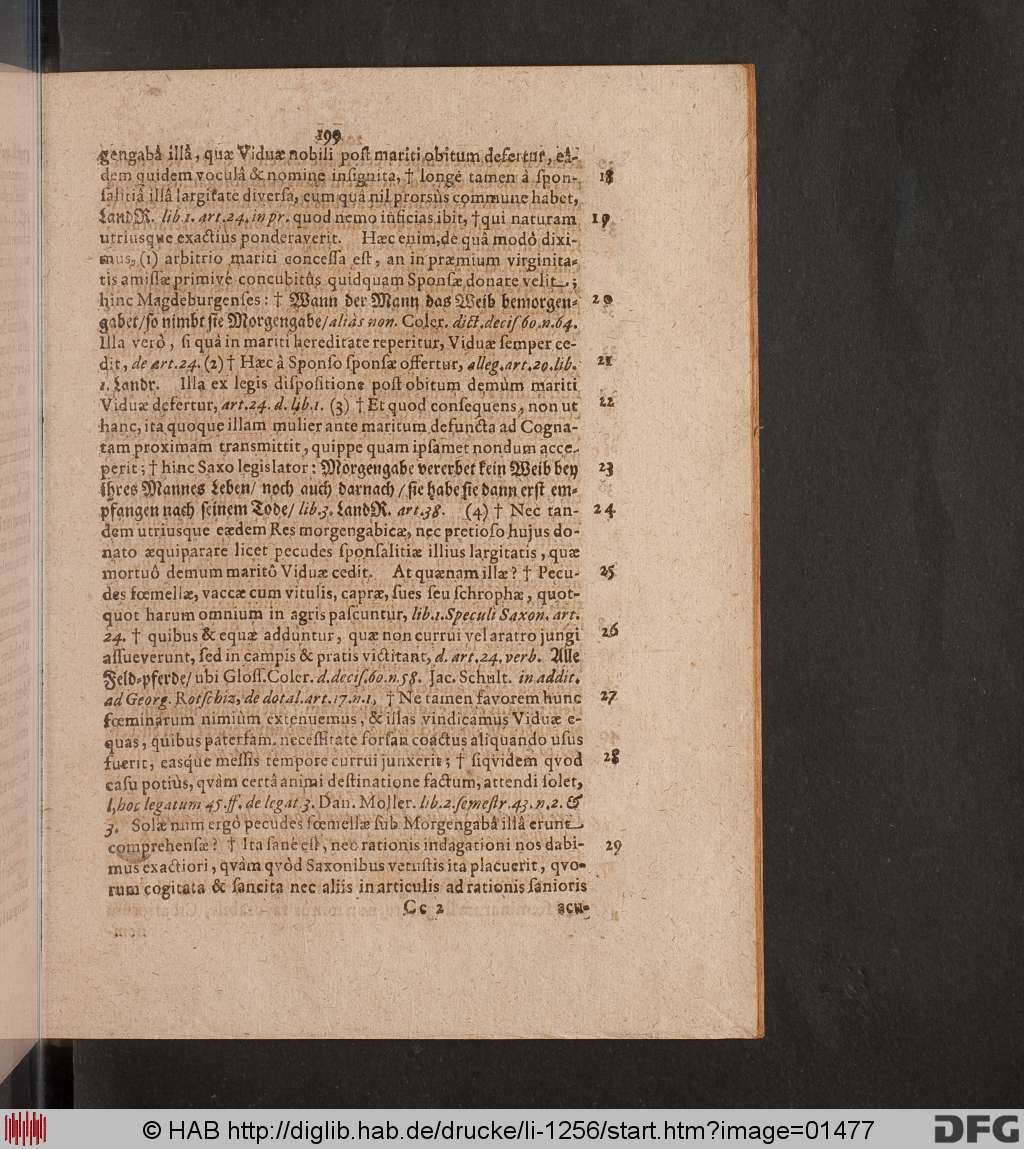 199
gengabâ illâ, quæ Viduæ nobili poſt mariti obitum defertur, eâ-
dem quidem voculâ & nomine inſignita, † longè tamen à ſpon- 18
ſalitiâ illâ largitate diverſa, cum quâ nil prorsùs commune habet,
LandR. lib. 1. art. 24. in pr. quod nemo inficias ibit, † qui naturam 19
utriusque exactiùs ponderaverit. Hæc enim, de quâ modò dixi-
mus, (1) arbitrio mariti conceſſa eſt, an in præmium virginita-
tis amiſſæ primivè concubitûs quidquam Sponſæ donare velit;
hinc Magdeburgenſes: † Wann der Mann das Weib bemorgen- 20
gabet/ ſo nimbt ſie Morgengabe/ aliàs non. Coler. dict. deciſ 60. n. 64.
Illa verò, ſi quâ in mariti hereditate reperitur, Viduæ ſemper ce-
dit, de art. 24. (2) † Hæc à Sponſo ſponſæ offertur, alleg. art. 20. lib. 21
1. Landr. Illa ex legis diſpoſitione poſt obitum demùm mariti
Viduæ defertur, art. 24. d. lib. 1. (3) † Et quod conſequens, non ut 22
hanc, ita quoque illam mulier ante maritum defuncta ad Cogna-
tam proximam transmittit, quippe quam ipſamet nondum acce-
perit; † hinc Saxo legislator: Morgengabe vererbet kein Weib bey 23
ihres Mannes Leben/ noch auch darnach/ ſie habe ſie dann erſt em-
pfangen nach ſeinem Tode/ lib. 3. LandR. art. 38. (4) † Nec tan- 24
dem utriusque eædem Res morgengabicæ, nec pretioſo hujus do-
nato æquiparare licet pecudes ſponſalitiæ illius largitatis, quæ
mortuô demum maritô Viduæ cedit. At quænam illæ? † Pecu- 25
des fœmellæ, vaccæ cum vitulis, capræ, ſues ſeu ſchrophæ, quot-
quot harum omnium in agris paſcuntur, lib. 1. Speculi Saxon. art.
24. † quibus & equæ adduntur, quæ non currui vel aratro jungi 26
aſſueverunt, ſed in campis & pratis victitant, d. art. 24. verb. Alle
Feld-pferde/ ubi Gloſſ. Coler. d. deciſ. 60. n. 58. Jac. Schult. in addit.
ad Georg. Rotſchiz, de dotal. art. 17. n. 1, † Ne tamen favorem hunc 27
fœminarum nimiùm extenuemus, & illas vindicamus Viduæ e-
quas, quibus paterfam. neceſſitate forſan coactus aliquando uſus
fuerit, easque meſſis tempore currui junxerit; † ſiqvidem qvod 28
caſu potiùs, qvàm certâ animi deſtinatione factum, attendi ſolet,
l, hoc legatum 45. ff. de legat 3. Dan. Moller. lib. 2. ſemeſtr. 43. n. 2. &
3. Solæ num ergò pecudes fœmellæ ſub Morgengabâ illâ erunt
comprehenſæ? † Ita ſanè eſt, nec rationis indagationi nos dabi- 29
mus exactiori, qvàm qvòd Saxonibus vetuſtis ita placuerit, qvo-
rum cogitata & ſancita nec aliis in articulis ad rationis ſanioris
Cc 2 acu-
© HAB http://diglib.hab.de/drucke/li-1256/start.htm?image=01477
DFG